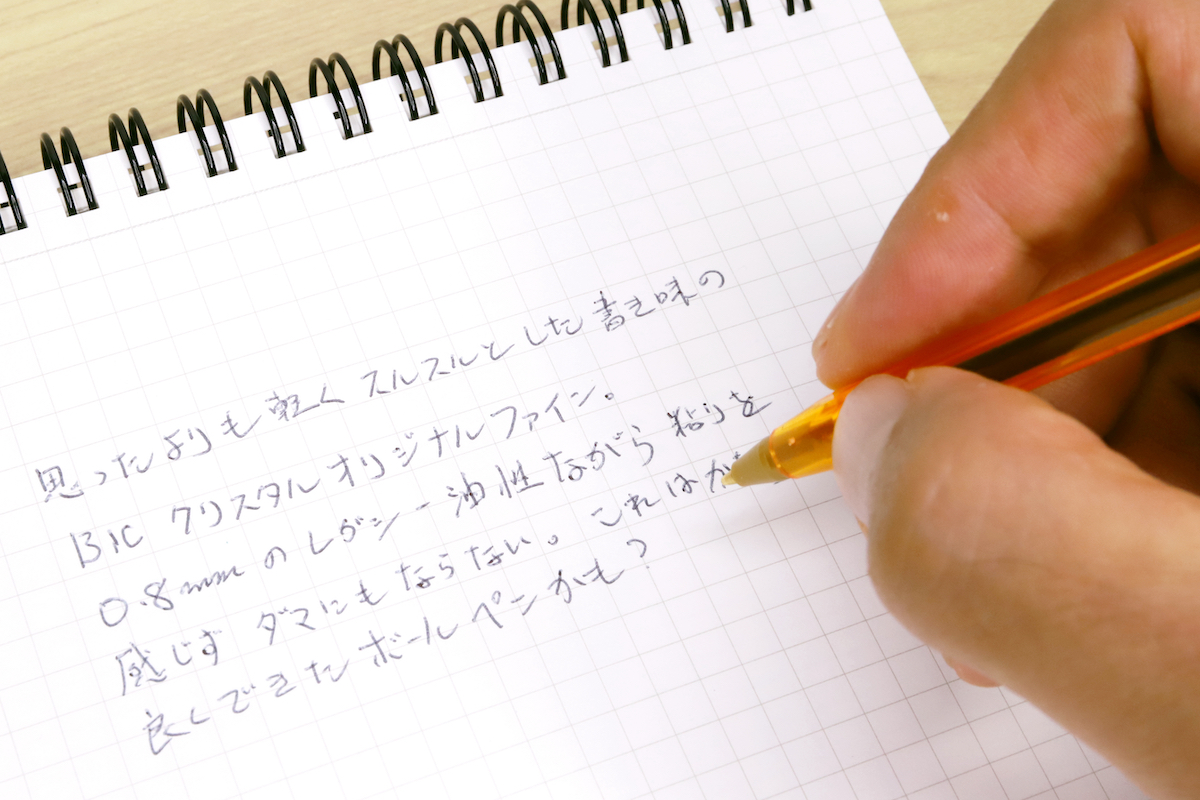 思ったよりも軽くスルスルとした書き味の
BIC クリスタルオリジナルファイン。
0.8mmのレガシー油性ながら粘りを
感じずダマにもならない。これはか
良くできたボールペンかも?